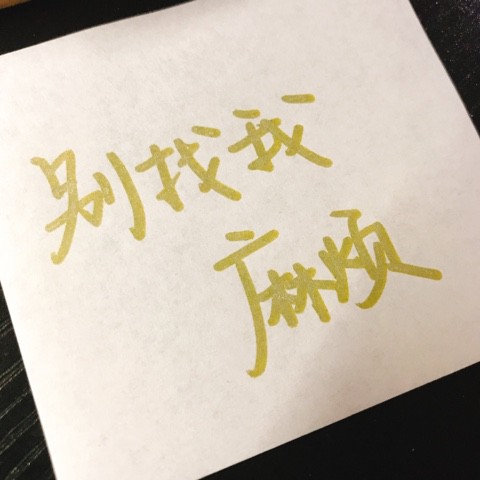 别找我
麻烦